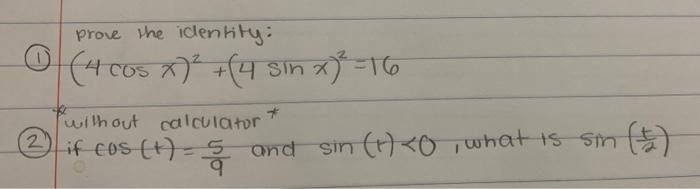 prove the identity:
① (4 cos x)² + (4 sin x)² = 16
*without calculator*
② if cos (t) = 5/9 and sin (t) < 0, what is sin (t/2)